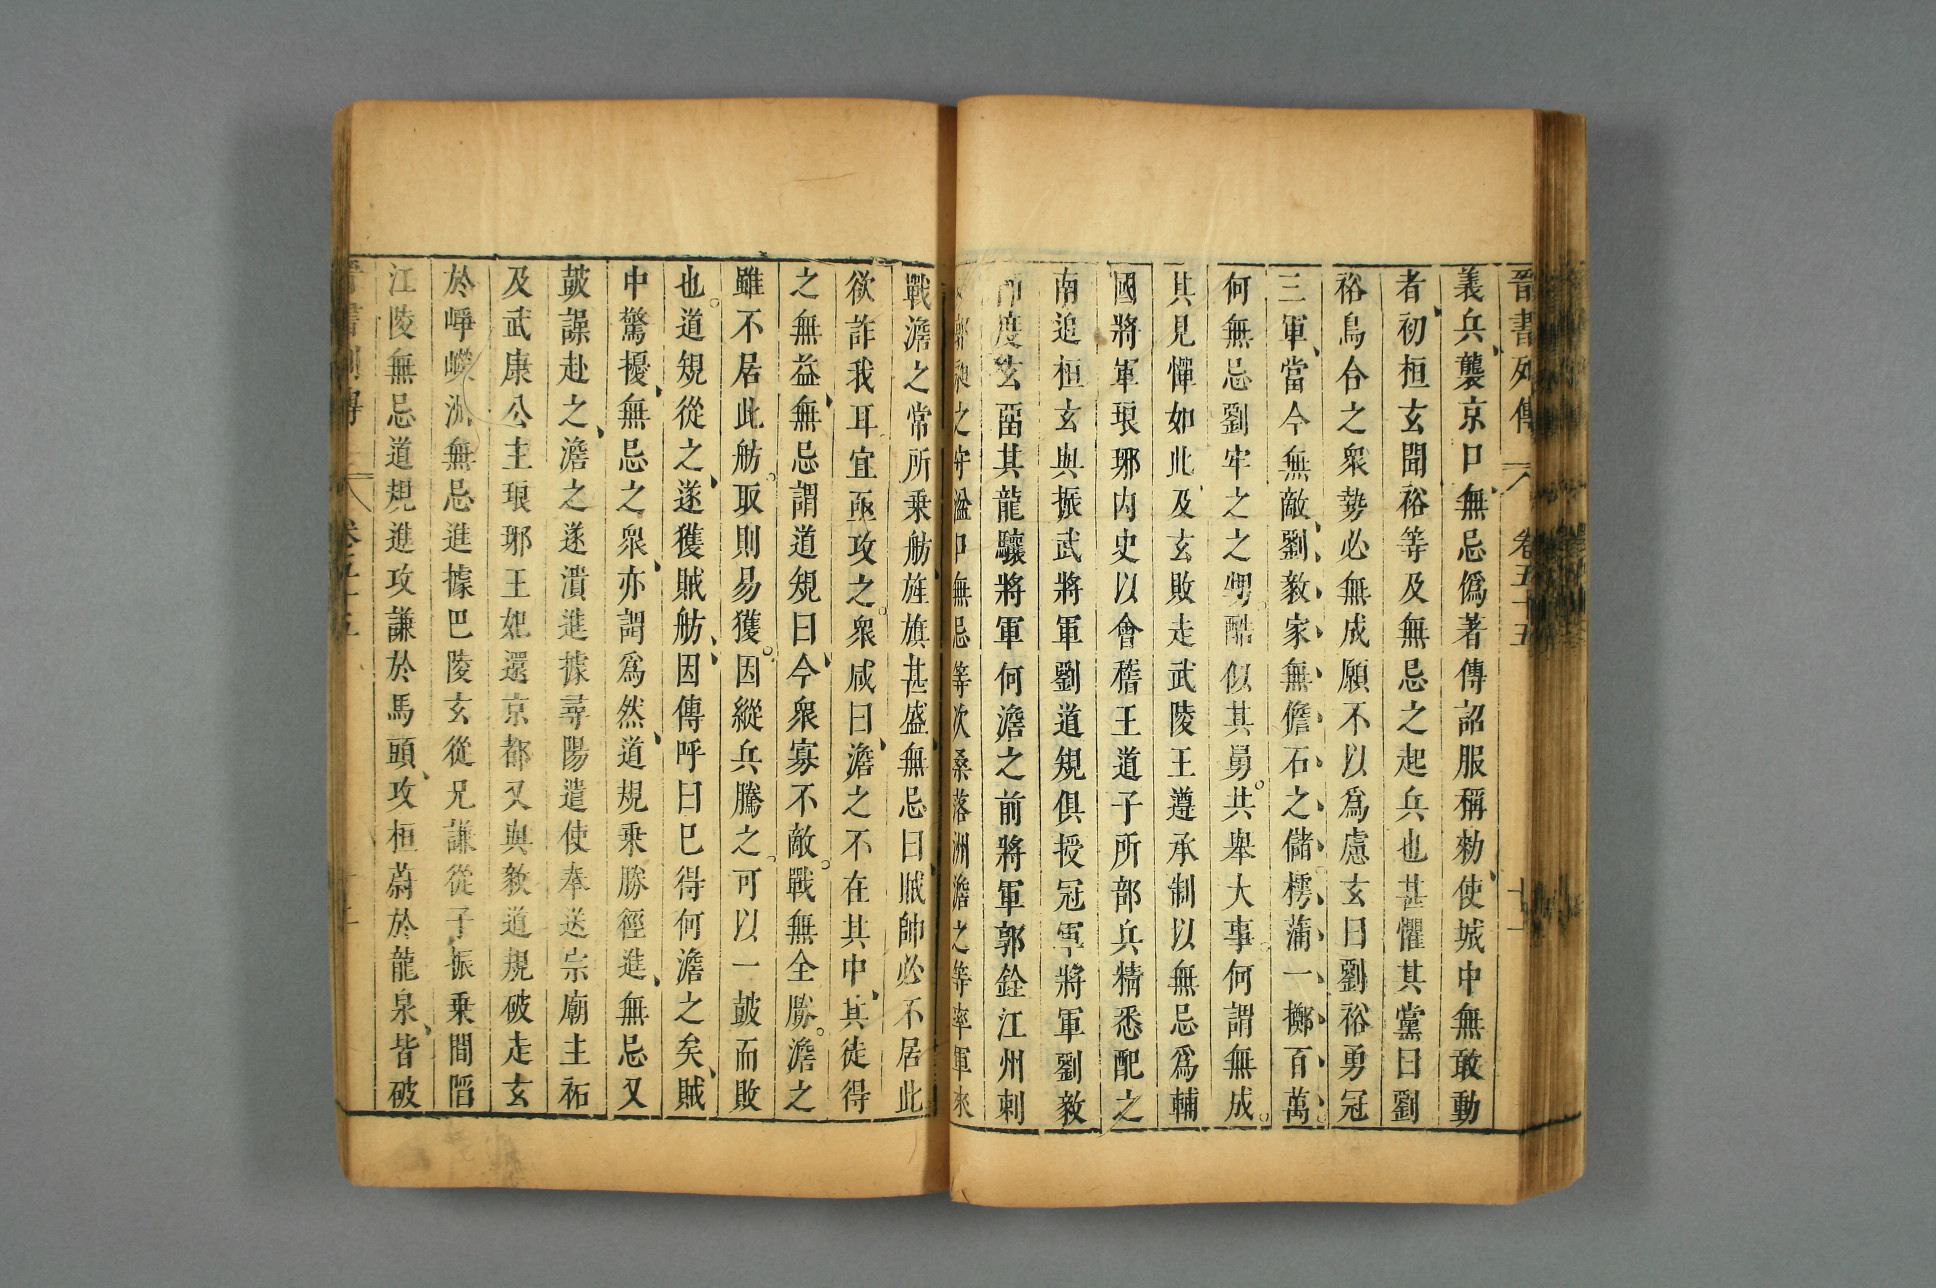 晉書列傳 卷五十五
義兵襲京口無忌僞著傳詔服稱勑使城中無敢動
者初桓玄聞裕等及無忌之起兵也甚懼其黨曰劉
裕烏合之衆勢必無成願不以爲慮玄曰劉裕勇冠
三軍當今無敵劉毅家無儋石之儲樗蒲一擲百萬
何無忌劉牢之之甥酷似其舅共舉大事何謂無成
其見憚如此及玄敗走武陵王遵承制以無忌爲輔
國將軍琅邪內史以會稽王道子所部兵精悉配之
南追桓玄與振武將軍劉道規俱授冠軍將軍劉毅
節度玄畱其龍驤將軍何澹之前將軍郭銓江州刺
郭昶之守湓口無忌等次桑落洲澹之等率軍來
戰澹之常所乗舫旌旗甚盛無忌曰賊帥必不居此
欲詐我耳宜亟攻之衆咸曰澹之不在其中其徒得
之無益無忌謂道規曰今衆寡不敵戰無全勝澹之
雖不居此舫取則易獲因縱兵騰之可以一鼓而敗
也道規從之遂獲賊舫因傳呼曰已得何澹之矣賊
中驚擾無忌之衆亦謂爲然道規乗勝徑進無忌又
鼓譟赴之澹之遂潰進據尋陽遣使奉送宗廟主祏
及武康公主琅邪王妃還京都又與毅道規破走玄
於崢嶸洲無忌進據巴陵玄從兄謙從子振乗間陷
江陵無忌道規進攻謙於馬頭攻桓蔚於龍泉皆破
晉書列傳 卷五十五